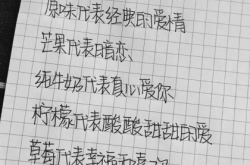 原味代表经典的爱情
芒果代表暗恋
纯牛奶代表真心爱你
柠檬代表酸酸甜甜的爱
草莓代表幸福和喜欢